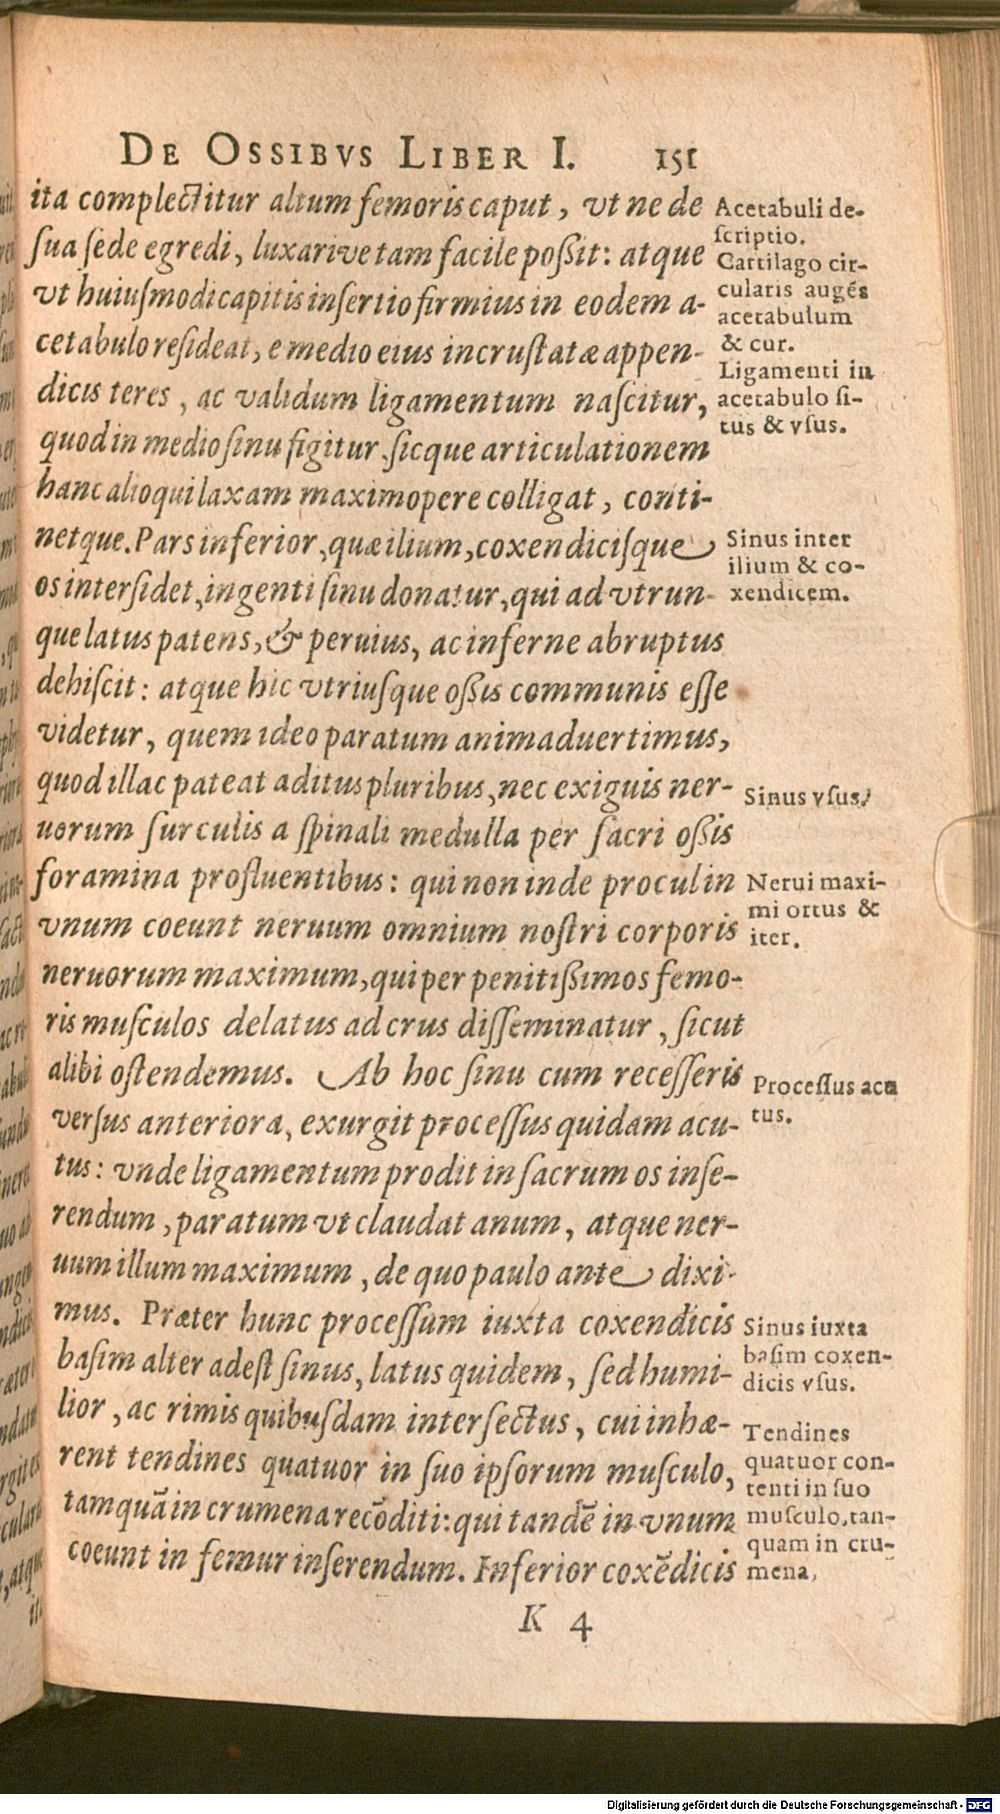 DE OSSIBVS LIBER I. 151
ita complectitur altum femoris caput, vt ne de
sua sede egredi, luxarive tam facile poßit: atque
vt huiusmodi capitis insertio firmius in eodem a-
cetabulo resideat, e medio eius incrustatæ appen-
dicis teres, ac validum ligamentum nascitur,
quod in medio sinu figitur, sicque articulationem
hanc alioqui laxam maximopere colligat, conti-
netque. Pars inferior, quæ ilium, coxendicisque
os intersidet, ingenti sinu donatur, qui ad vtrun-
que latus patens, & peruius, ac inferne abruptus
dehiscit: atque hic vtriusque oßis communis esse
videtur, quem ideo paratum animaduertimus,
quod illac pateat aditus pluribus, nec exiguis ner-
uorum surculis a spinali medulla per sacri oßis
foramina profluentibus: qui non inde procul in
vnum coeunt neruum omnium nostri corporis
neruorum maximum, qui per penitißimos femo-
ris musculos delatus ad crus disseminatur, sicut
alibi ostendemus. Ab hoc sinu cum recesseris
versus anteriora, exurgit processus quidam acu-
tus: vnde ligamentum prodit in sacrum os inse-
rendum, paratum vt claudat anum, atque ner-
uum illum maximum, de quo paulo ante dixi-
mus. Præter hunc processum iuxta coxendicis
basim alter adest sinus, latus quidem, sed humi-
lior, ac rimis quibusdam intersectus, cui inhæ-
rent tendines quatuor in suo ipsorum musculo,
tamquã in crumena recõditi: qui tandẽ in vnum
coeunt in femur inserendum. Inferior coxẽdicis
K 4
Acetabuli de-
scriptio.
Cartilago cir-
cularis augẽs
acetabulum
& cur.
Ligamenti in
acetabulo si-
tus & vsus.
Sinus inter
ilium & co-
xendicem.
Sinus vsus.
Nerui maxi-
mi ortus &
iter.
Processus acu
tus.
Sinus iuxta
basim coxen-
dicis vsus.
Tendines
quatuor con-
tenti in suo
musculo, tan-
quam in cru-
mena,
Digitalisierung gefördert durch die Deutsche Forschungsgemeinschaft - DFG